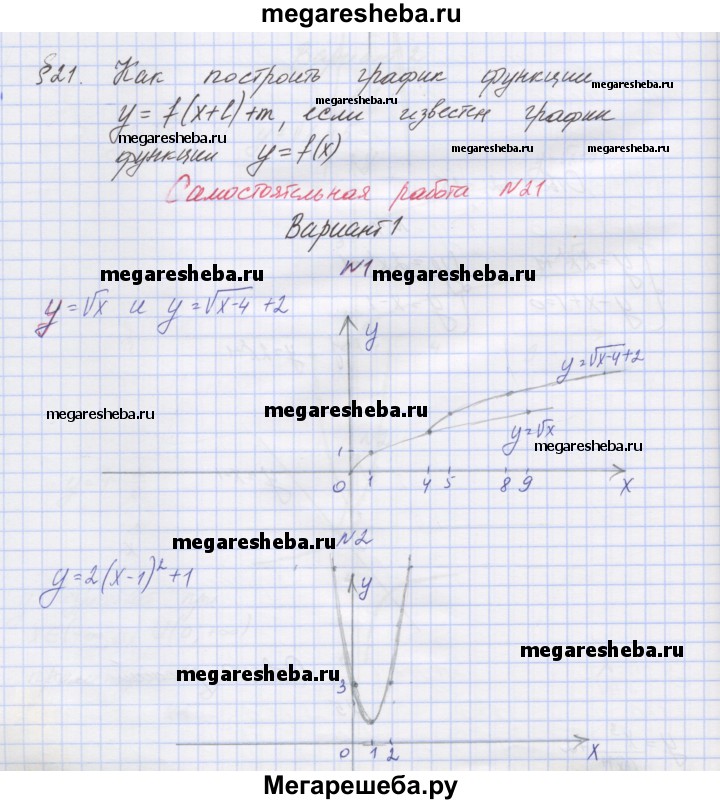 megaresheba.ru
§21. Как построить график функции
megaresheba.ru
megaresheba.ru
y = f(x+l)+m, если известен график
megaresheba.ru
megaresheba.ru
функции y=f(x)
Самостоятельная работа №21
Вариант 1
№1
megaresheba.ru
megaresheba.ru
y=√x и y=√x-4 +2
y
y=√x-4+2
megaresheba.ru
megaresheba.ru
y=√x
megaresheba.ru
1
0 1 4 5 8 9 x
№2
megaresheba.ru
megaresheba.ru
y=2(x-1)²+1
y
megaresheba.ru
megaresheba.ru
3
0 1 2 x
Мегарешеба.ру